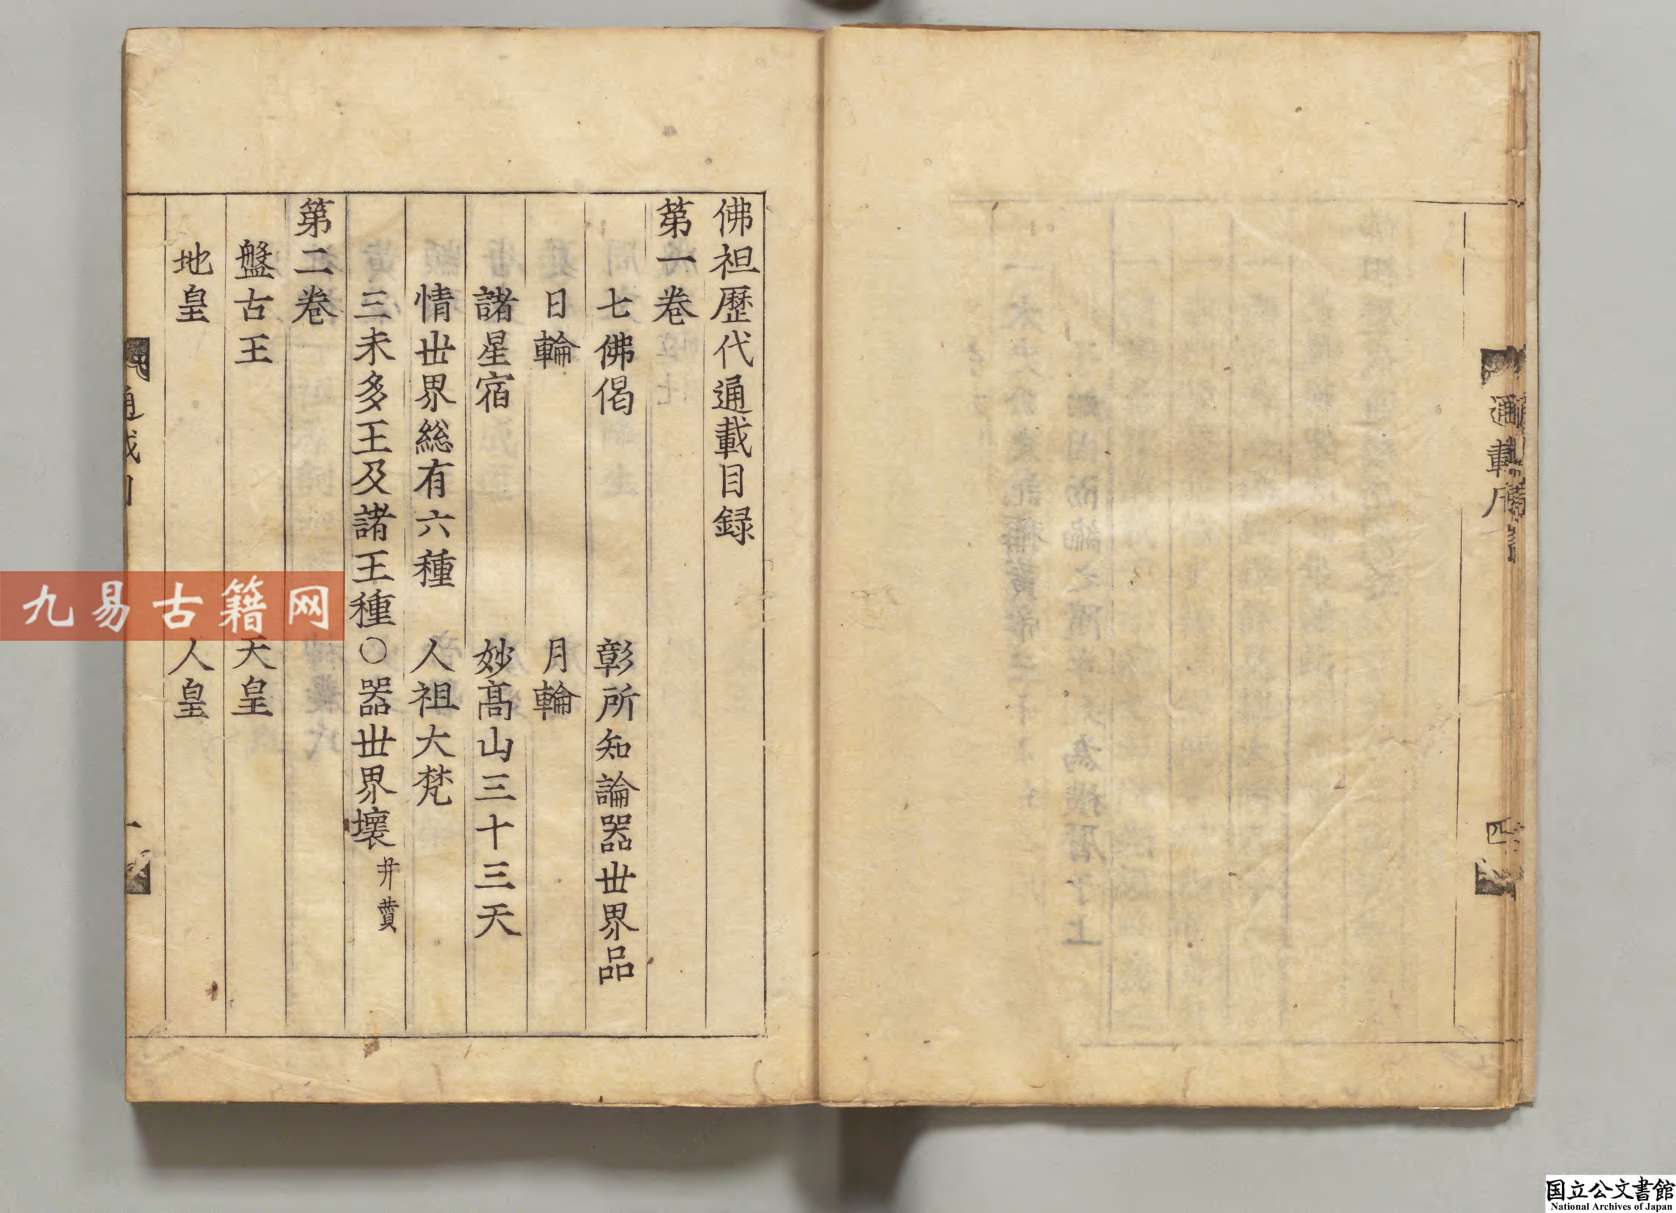 佛祖歷代通載目録
第一卷
七佛偈　彰所知論器世界品
日輪　月輪
諸星宿　妙髙山三十三天
情世界総有六種　人祖大梵
三末多王及諸王種○器世界壞
第二卷
盤古王　天皇
地皇　人皇
通載
四
九易古籍网
国立公文書館
National Archives of Japan